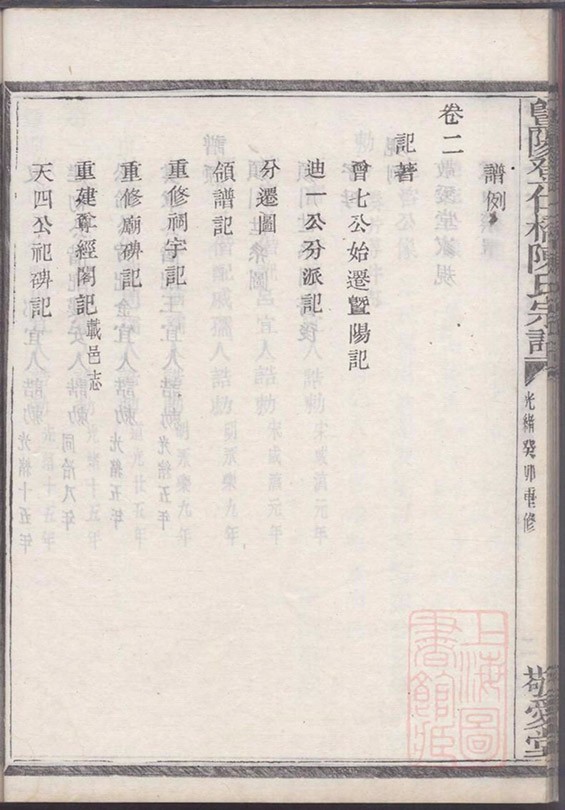 暨陽登仕橋陳氏宗譜
光緒癸卯重修
敬愛堂
譜例
卷二
記著
曾七公始遷暨陽記
迪一公分派記
分遷圖
領譜記
重修祠宇記
重修廟碑記
重建尊經閣記 載邑志
天四公祀碑記
上海圖
書館藏